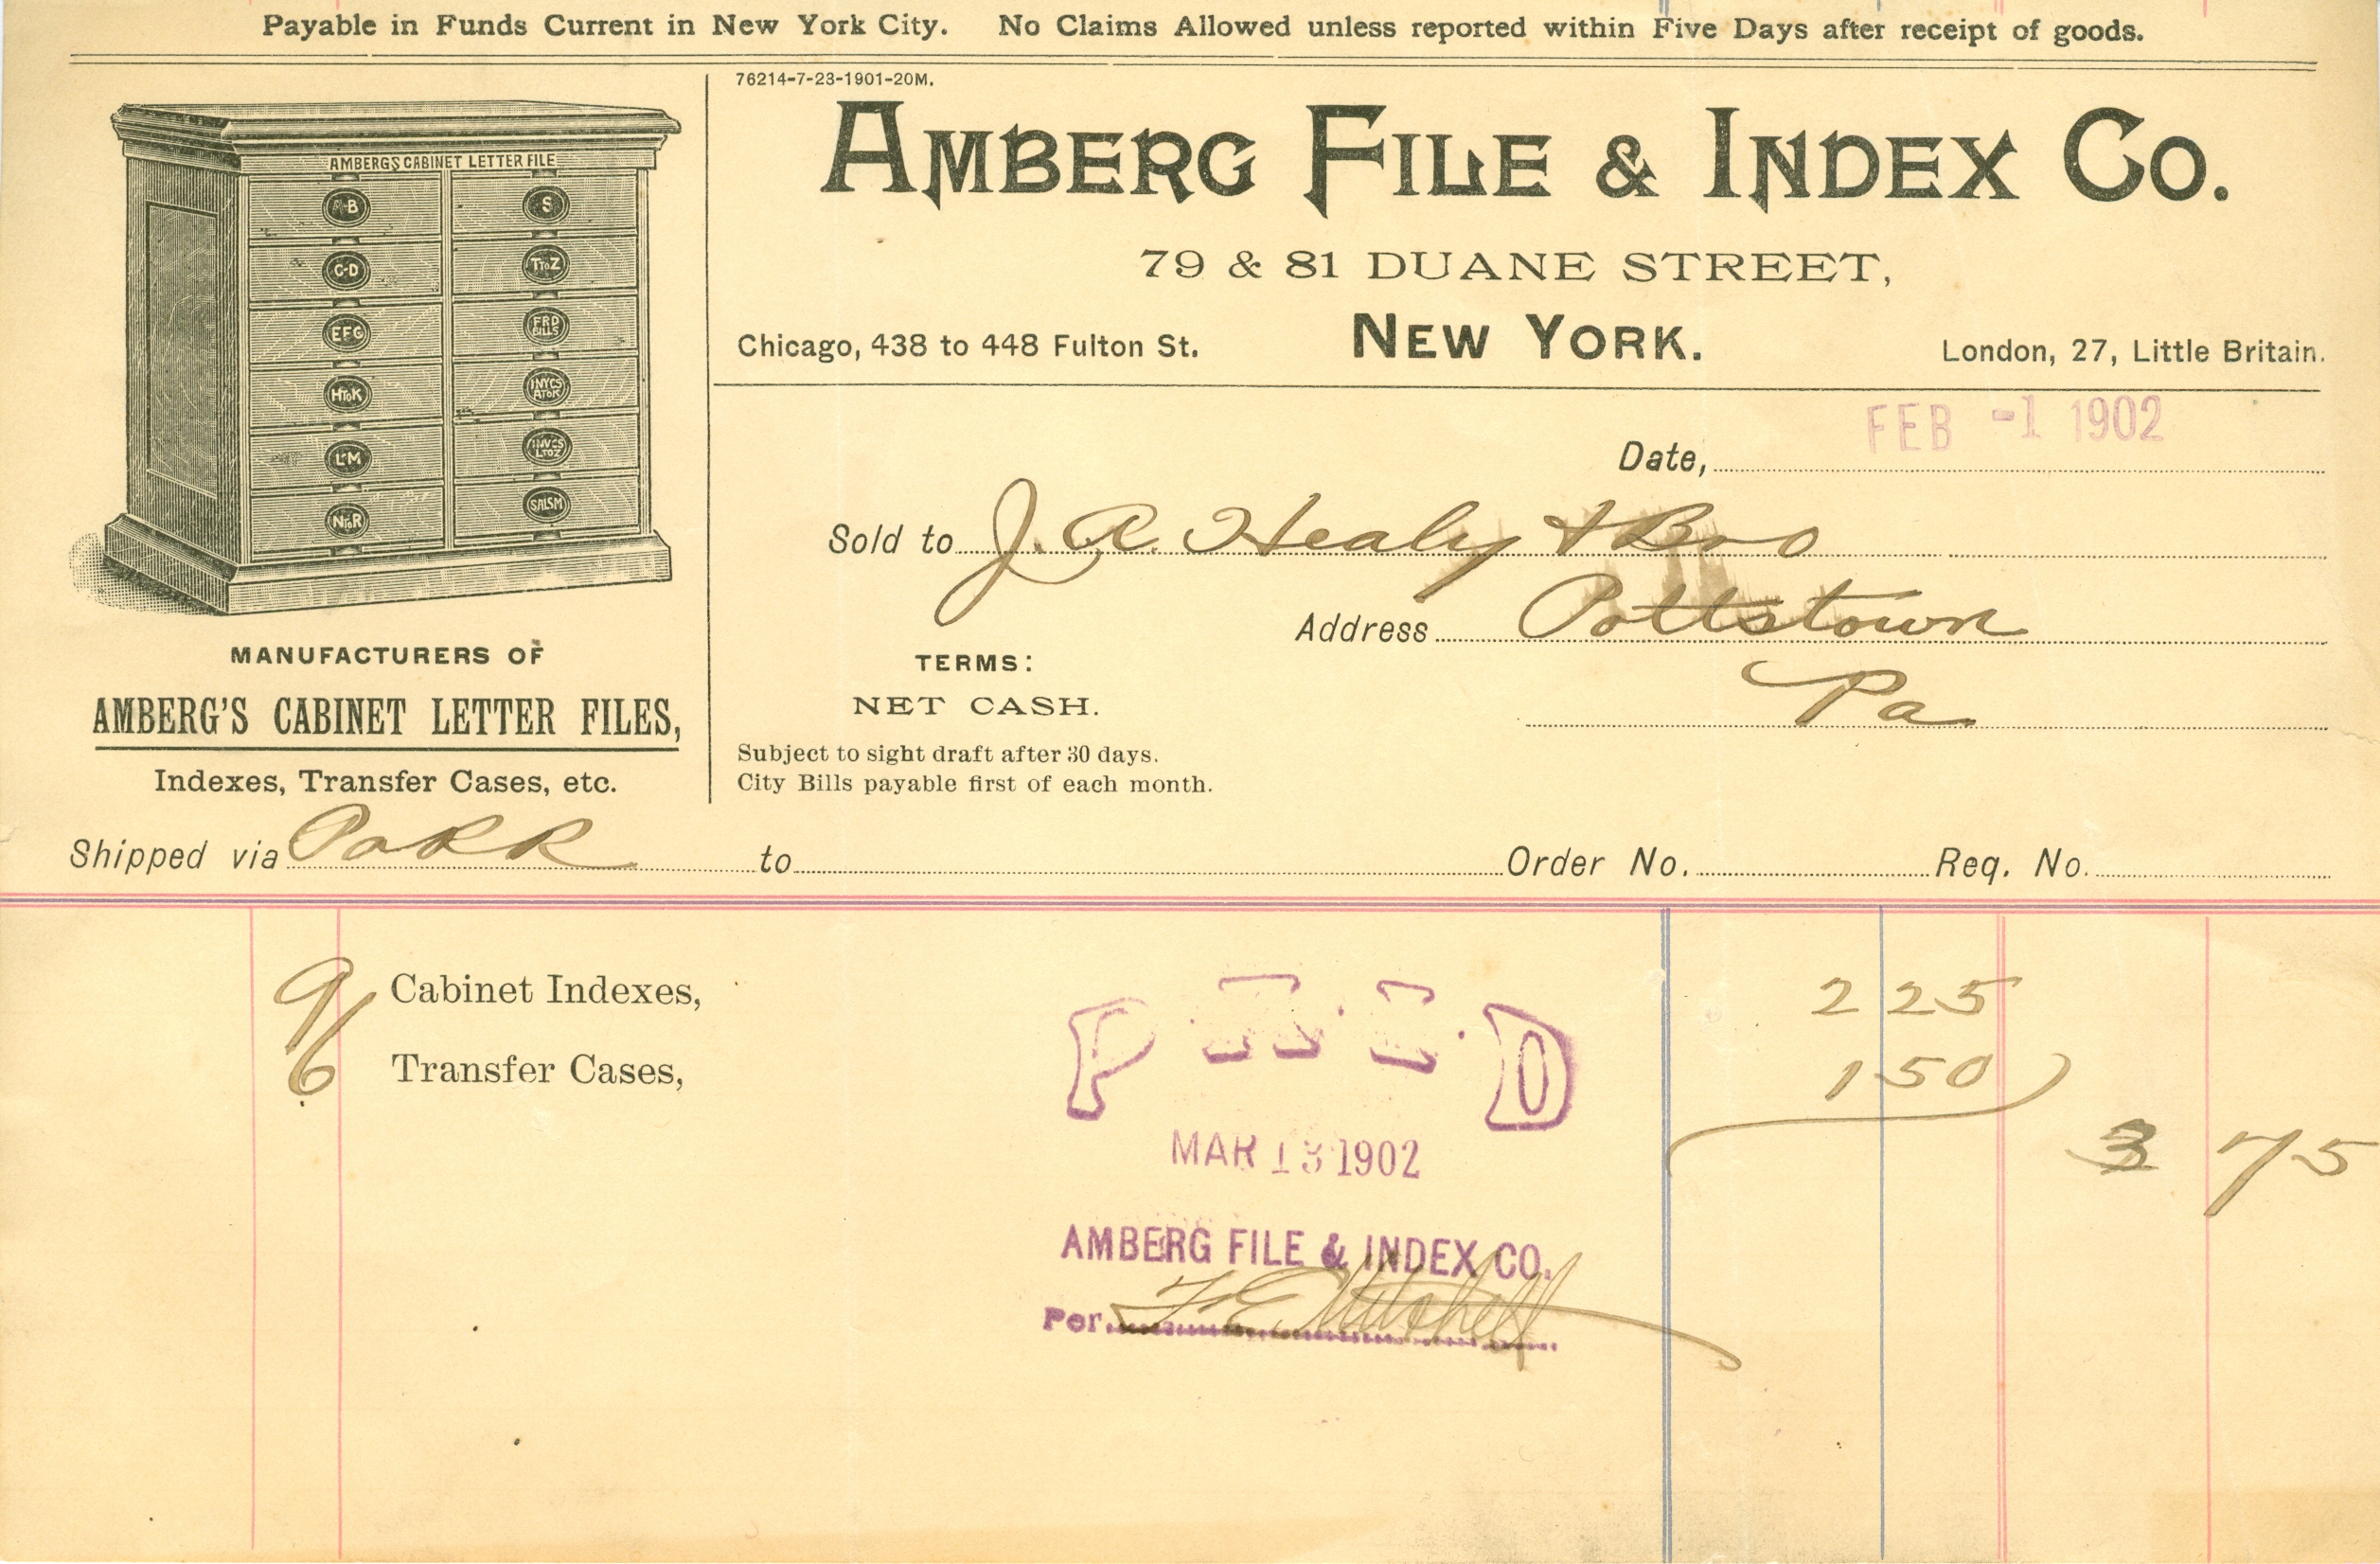 Payable in Funds Current in New York City. No Claims Allowed unless reported within Five Days after receipt of goods.
76214-7-23-1901-20M.
AMBERG FILE & INDEX CO.
79 & 81 DUANE STREET,
Chicago, 438 to 448 Fulton St. NEW YORK. London, 27, Little Britain.
AMBERGS CABINET LETTER FILE
A-B S
C-D TToZ
EFG FRD BILLS
HToK INVCS AToK
L-M INVCS LTOZ
NToR SALSM
MANUFACTURERS OF
AMBERG'S CABINET LETTER FILES,
Indexes, Transfer Cases, etc.
Date, FEB -1 1902
Sold to J. A. Healy & Bro
Address Pottstown
Pa
TERMS:
NET CASH.
Subject to sight draft after 30 days.
City Bills payable first of each month.
Shipped via PaRR to Order No. Req. No.
9 Cabinet Indexes, 2 25
6 Transfer Cases, 1 50
3 75
P D
MAR 13 1902
AMBERG FILE & INDEX CO.
Per F. E. Mitchell